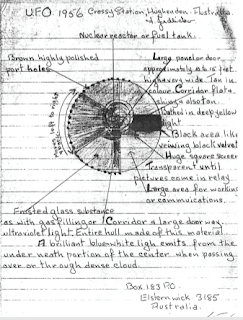 U.F.O. 1956 Crossy Station, Hughenden. Australia.
Nuclear reactor or fuel tank.
Brown highly polished
port holes.
Large panel or door
approximately 12 to 15 feet
high & very wide. Tan in
colour. Corridor flat &
shining also tan.
Bathed in deep yellow
light
Black area like
viewing black velvet
Huge square screen
Transparent until
pictures come in relay
Large area for working
or commuications.
Frosted glass substance
as with gas filling or
ultraviolet light. Entire hull made of this material.
Corridor & large door way.
A brilliant bluewhite light emits from the
under neath portion of the center when passing
over or through dense cloud.
Box 183 P.O.
Elsternwick. 3185
Australia.